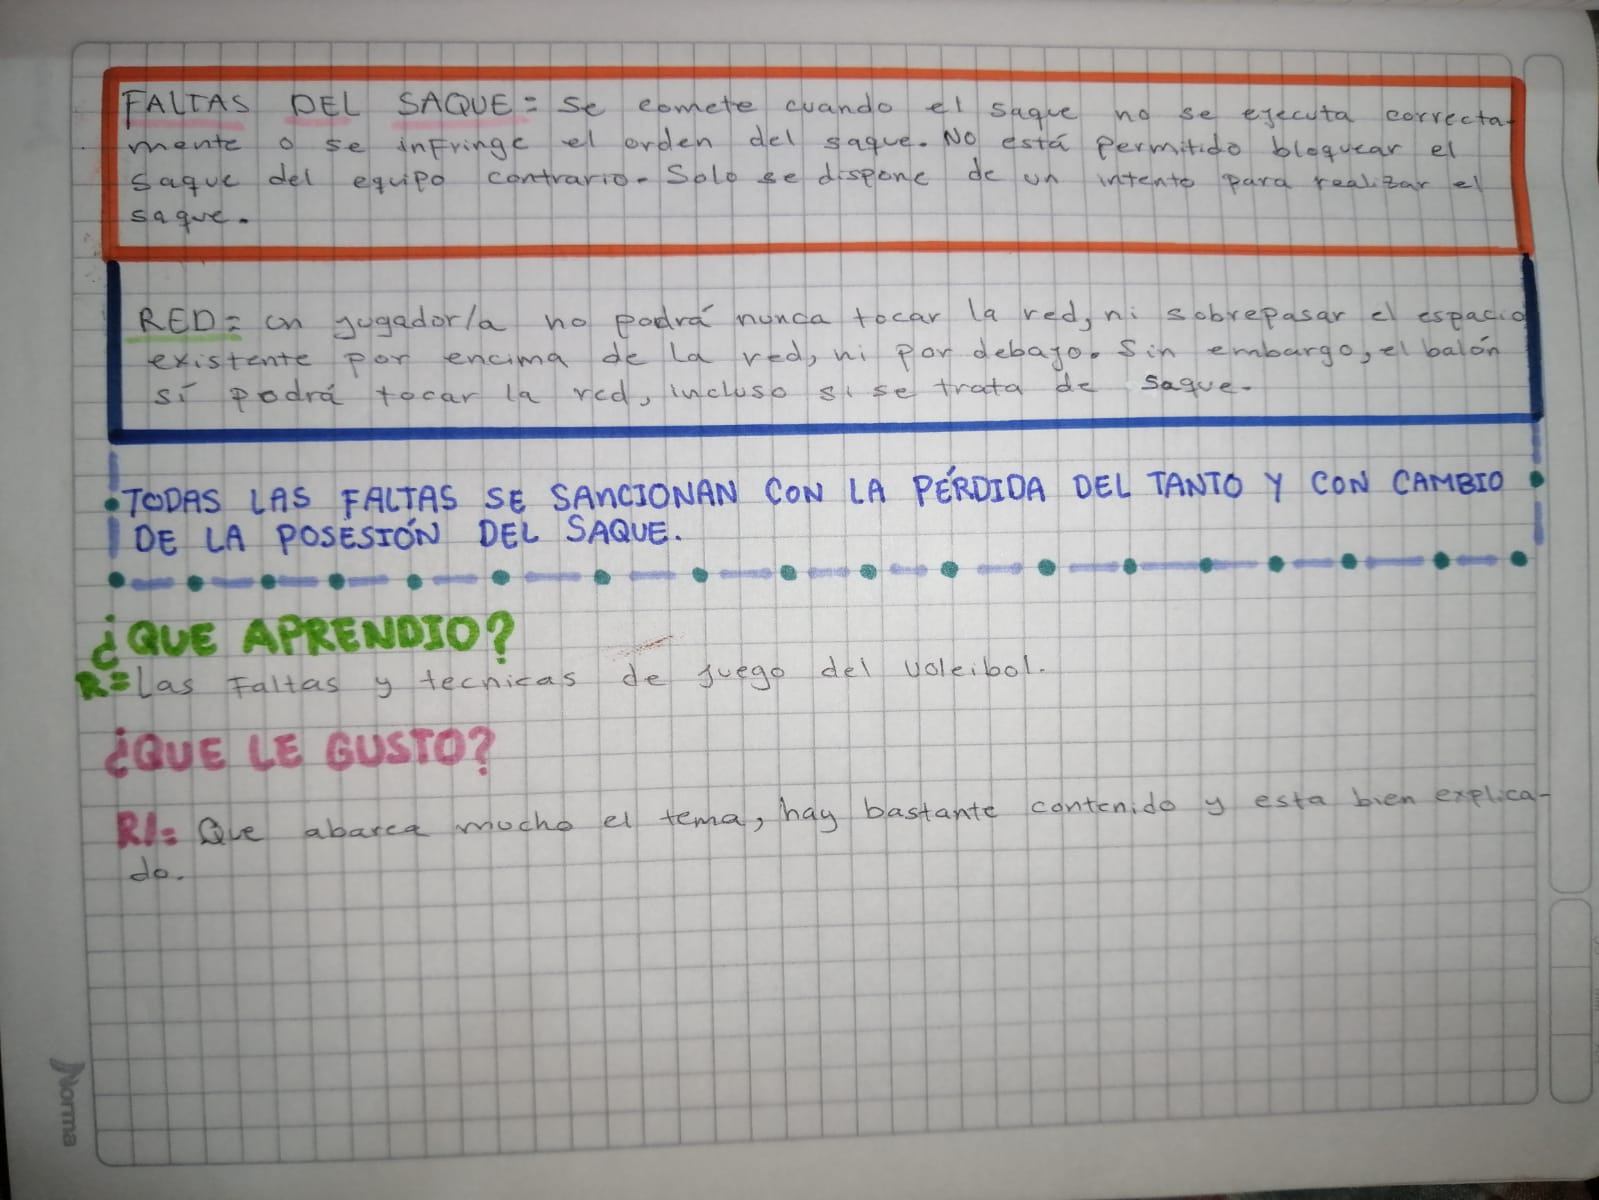 FALTAS DEL SAQUE= Se comete cuando el saque no se ejecuta correcta-
mente o se infringe el orden del saque. No está permitido bloquear el
saque del equipo contrario. Solo se dispone de un intento para realizar el
saque.
RED= un jugador/a no podrá nunca tocar la red, ni sobrepasar el espacio
existente por encima de la red, ni por debajo. Sin embargo, el balón
sí podrá tocar la red, incluso si se trata de saque.
TODAS LAS FALTAS SE SANCIONAN CON LA PÉRDIDA DEL TANTO Y CON CAMBIO
DE LA POSESIÓN DEL SAQUE.
¿QUE APRENDIO?
R= Las Faltas y tecnicas de juego del voleibol.
¿QUE LE GUSTO?
R/= Que abarca mucho el tema, hay bastante contenido y esta bien explica-
do.
Norma